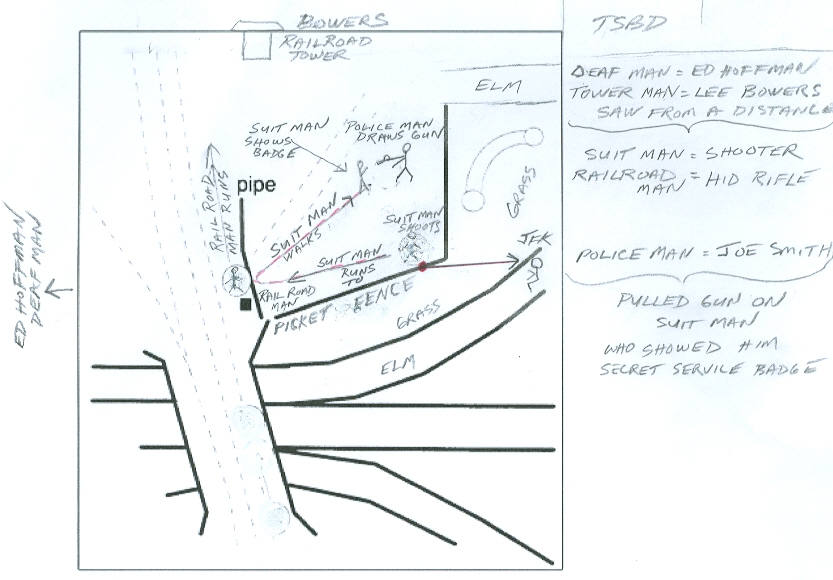 BOWERS
RAILROAD
TOWER
TSBD
ELM
DEAF MAN = ED HOFFMAN
TOWER MAN = LEE BOWERS
SAW FROM A DISTANCE
SUIT MAN
SHOWS
BADGE
POLICE MAN
DRAWS GUN
SUIT MAN = SHOOTER
RAILROAD MAN = HID RIFLE
GRASS
RAILROAD
MAN RUNS
pipe
SUIT MAN
WALKS
SUIT MAN
SHOOTS
JFK
SUIT MAN
RUNS
TO
POLICE MAN = JOE SMITH
PULLED GUN ON
SUIT MAN
WHO SHOWED HIM
SECRET SERVICE BADGE
ED HOFFMAN
DEAF MAN
RAILROAD
MAN
PICKET FENCE
GRASS
ELM